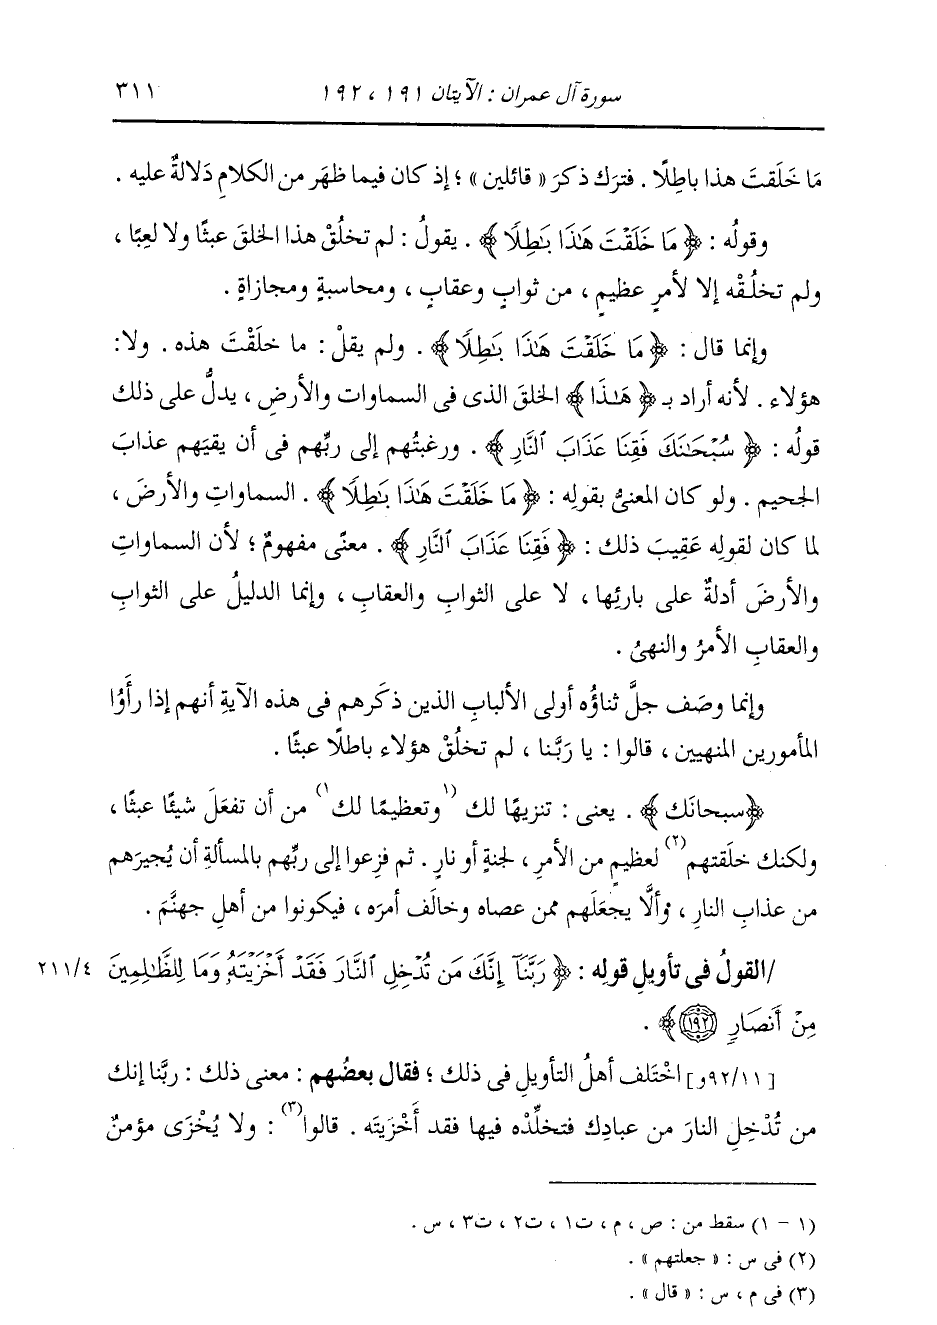 سورة آل عمران : الآيتان ١٩١ ، ١٩٢ ٣١١
مَا خَلَقتَ هذا باطِلًا . فترَك ذكرَ « قائلين » ؛ إذ كان فيما ظهَر من الكلامِ دَلالةٌ عليه .
وقولُه : ﴿ مَا خَلَقْتَ هَٰذَا بَٰطِلًا ﴾ . يقولُ : لم تخلُقْ هذا الخلقَ عبثًا ولا لعِبًا ،
ولم تخلُقْه إلا لأمرٍ عظيمٍ ، من ثوابٍ وعقابٍ ، ومحاسبةٍ ومجازاةٍ .
وإنما قال : ﴿ مَا خَلَقْتَ هَٰذَا بَٰطِلًا ﴾ . ولم يقلْ : ما خلَقْتَ هذه . ولا:
هؤلاء . لأنه أراد بـ ﴿ هَٰذَا ﴾ الخلقَ الذى فى السماوات والأرضِ ، يدلُّ على ذلك
قولُه : ﴿ سُبْحَٰنَكَ فَقِنَا عَذَابَ ٱلنَّارِ ﴾ . ورغبتُهم إلى ربِّهم فى أن يقيَهم عذابَ
الجحيم . ولو كان المعنىُّ بقولِه : ﴿ مَا خَلَقْتَ هَٰذَا بَٰطِلًا ﴾ . السماواتِ والأرضَ ،
لما كان لقولِه عَقِيبَ ذلك : ﴿ فَقِنَا عَذَابَ ٱلنَّارِ ﴾ . معنًى مفهومٌ ؛ لأن السماواتِ
والأرضَ أدلةٌ على بارئِها ، لا على الثوابِ والعقابِ ، وإنما الدليلُ على الثوابِ
والعقابِ الأمرُ والنهىُ .
وإنما وصَف جلَّ ثناؤُه أولى الألبابِ الذين ذكَرهم فى هذه الآيةِ أنهم إذا رأَوُا
المأمورين المنهيين ، قالوا : يا ربَّنا ، لم تخلُقْ هؤلاء باطلًا عبثًا .
﴿سبحانَك ﴾ . يعنى : تنزيهًا لك (١وتعظيمًا لك١) من أن تفعَلَ شيئًا عبثًا ،
ولكنك خلَقتهم(٢) لعظيمٍ من الأمرِ ، لجنةٍ أو نارٍ . ثم فزِعوا إلى ربِّهم بالمسألةِ أن يُجيرَهم
من عذابِ النارِ ، وألَّا يجعَلَهم ممن عصاه وخالَف أمرَه ، فيكونوا من أهلِ جهنَّمَ .
/القولُ فى تأويلِ قولِه : ﴿ رَبَّنَآ إِنَّكَ مَن تُدْخِلِ ٱلنَّارَ فَقَدْ أَخْزَيْتَهُۥ وَمَا لِلظَّٰلِمِينَ ٢١١/٤
مِنْ أَنصَارٍ ١٩٢ ﴾ .
[ ٩٢/١١و] اختَلف أهلُ التأويلِ فى ذلك ؛ فقال بعضُهم : معنى ذلك : ربَّنا إنك
من تُدْخِلِ النارَ من عبادِك فتخلِّدْه فيها فقد أَخْزَيتَه . قالوا(٣) : ولا يُخْزَى مؤمنٌ
(١ - ١) سقط من : ص ، م ، ت١ ، ت٢ ، ت٣ ، س .
(٢) فى س : « جعلتهم » .
(٣) فى م ، س : « قال » .